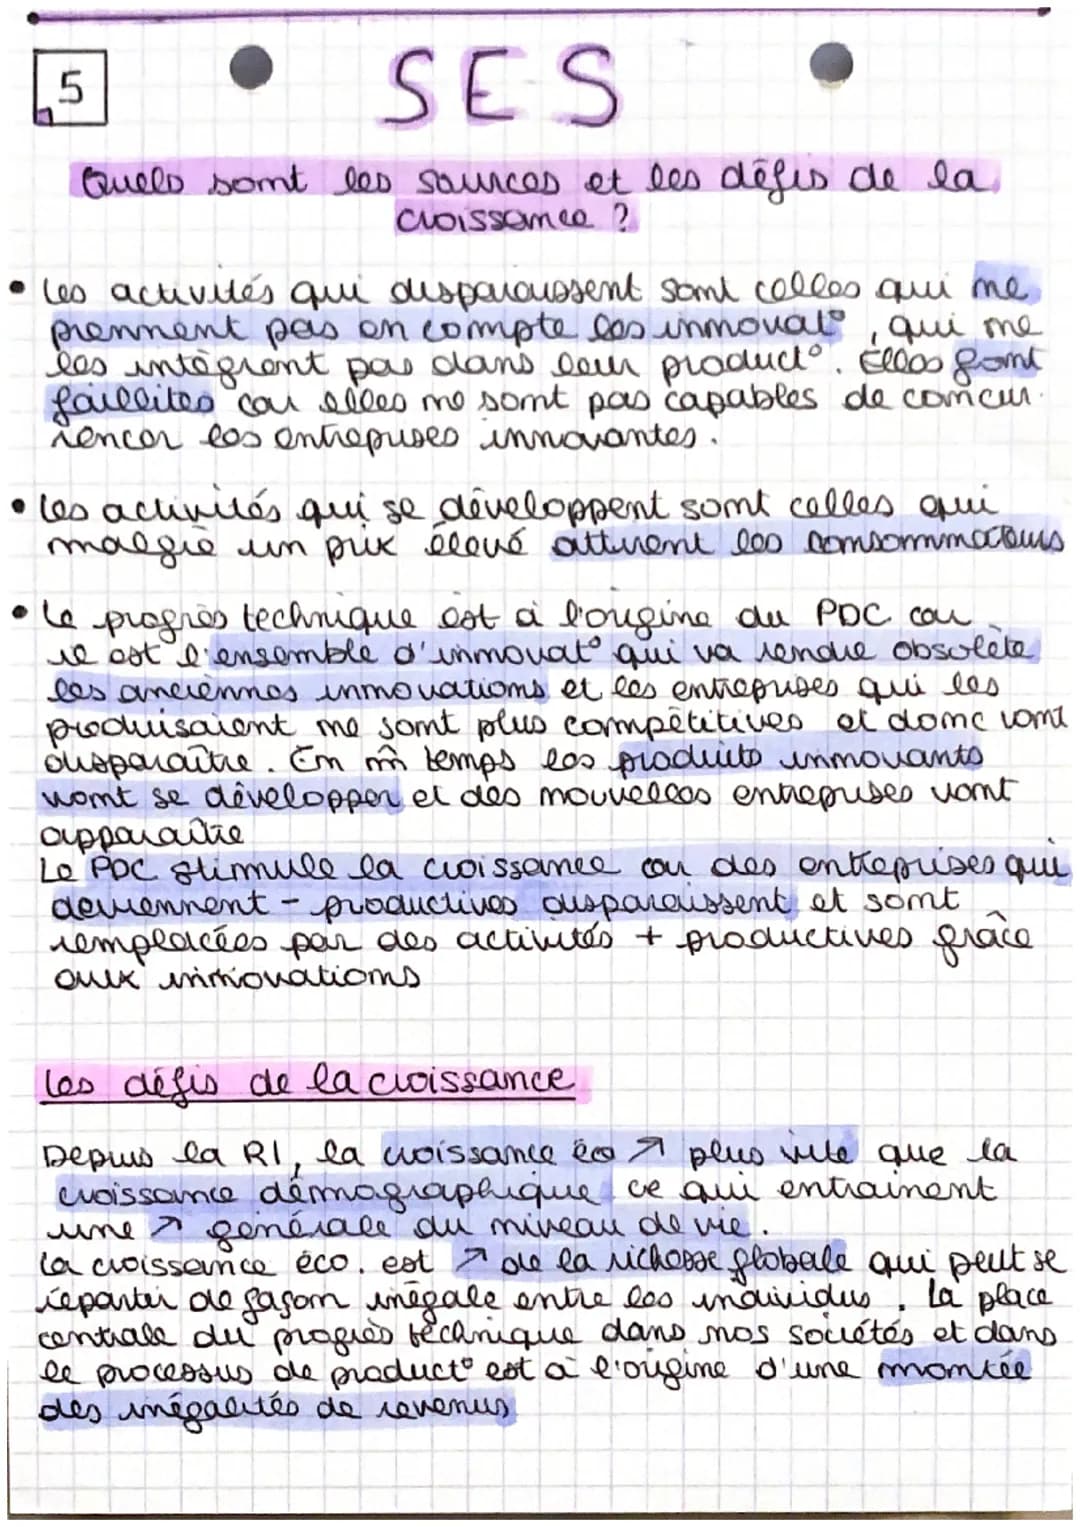 5
SES
Quels sont les sources et les défis de la
croissance ?
• Les activités qui disparaissent sont celles qui ne
prennent pas en compte les innovat°, qui ne
les intègrent pas dans leur product°. Elles font
faillites car elles ne sont pas capables de concur-
rencer les entreprises innovantes.
• Les activités qui se développent sont celles qui
malgré un prix élevé attirent les consommateurs
• Le progrès technique est à l'origine du PDC car
il est l'ensemble d'innovat° qui va rendre obsolète
les anciennes innovations et les entreprises qui les
produisaient ne sont plus compétitives et donc vont
disparaître. En m̂ temps les produits innovants
vont se développer et des nouvelles entreprises vont
apparaître
Le PDC stimule la croissance car des entreprises qui
deviennent - productives disparaissent et sont
remplacées par des activités + productives grâce
aux innovations
Les défis de la croissance
Depuis la RI, la croissance éco ↗ plus vite que la
croissance démographique ce qui entrainent
une ↗ générale du niveau de vie.
La croissance éco. est ↗ de la richesse globale qui peut se
répartir de façon inégale entre les individus. La place
centrale du progrès technique dans nos sociétés et dans
le processus de product° est à l'origine d'une montée
des inégalités de revenus